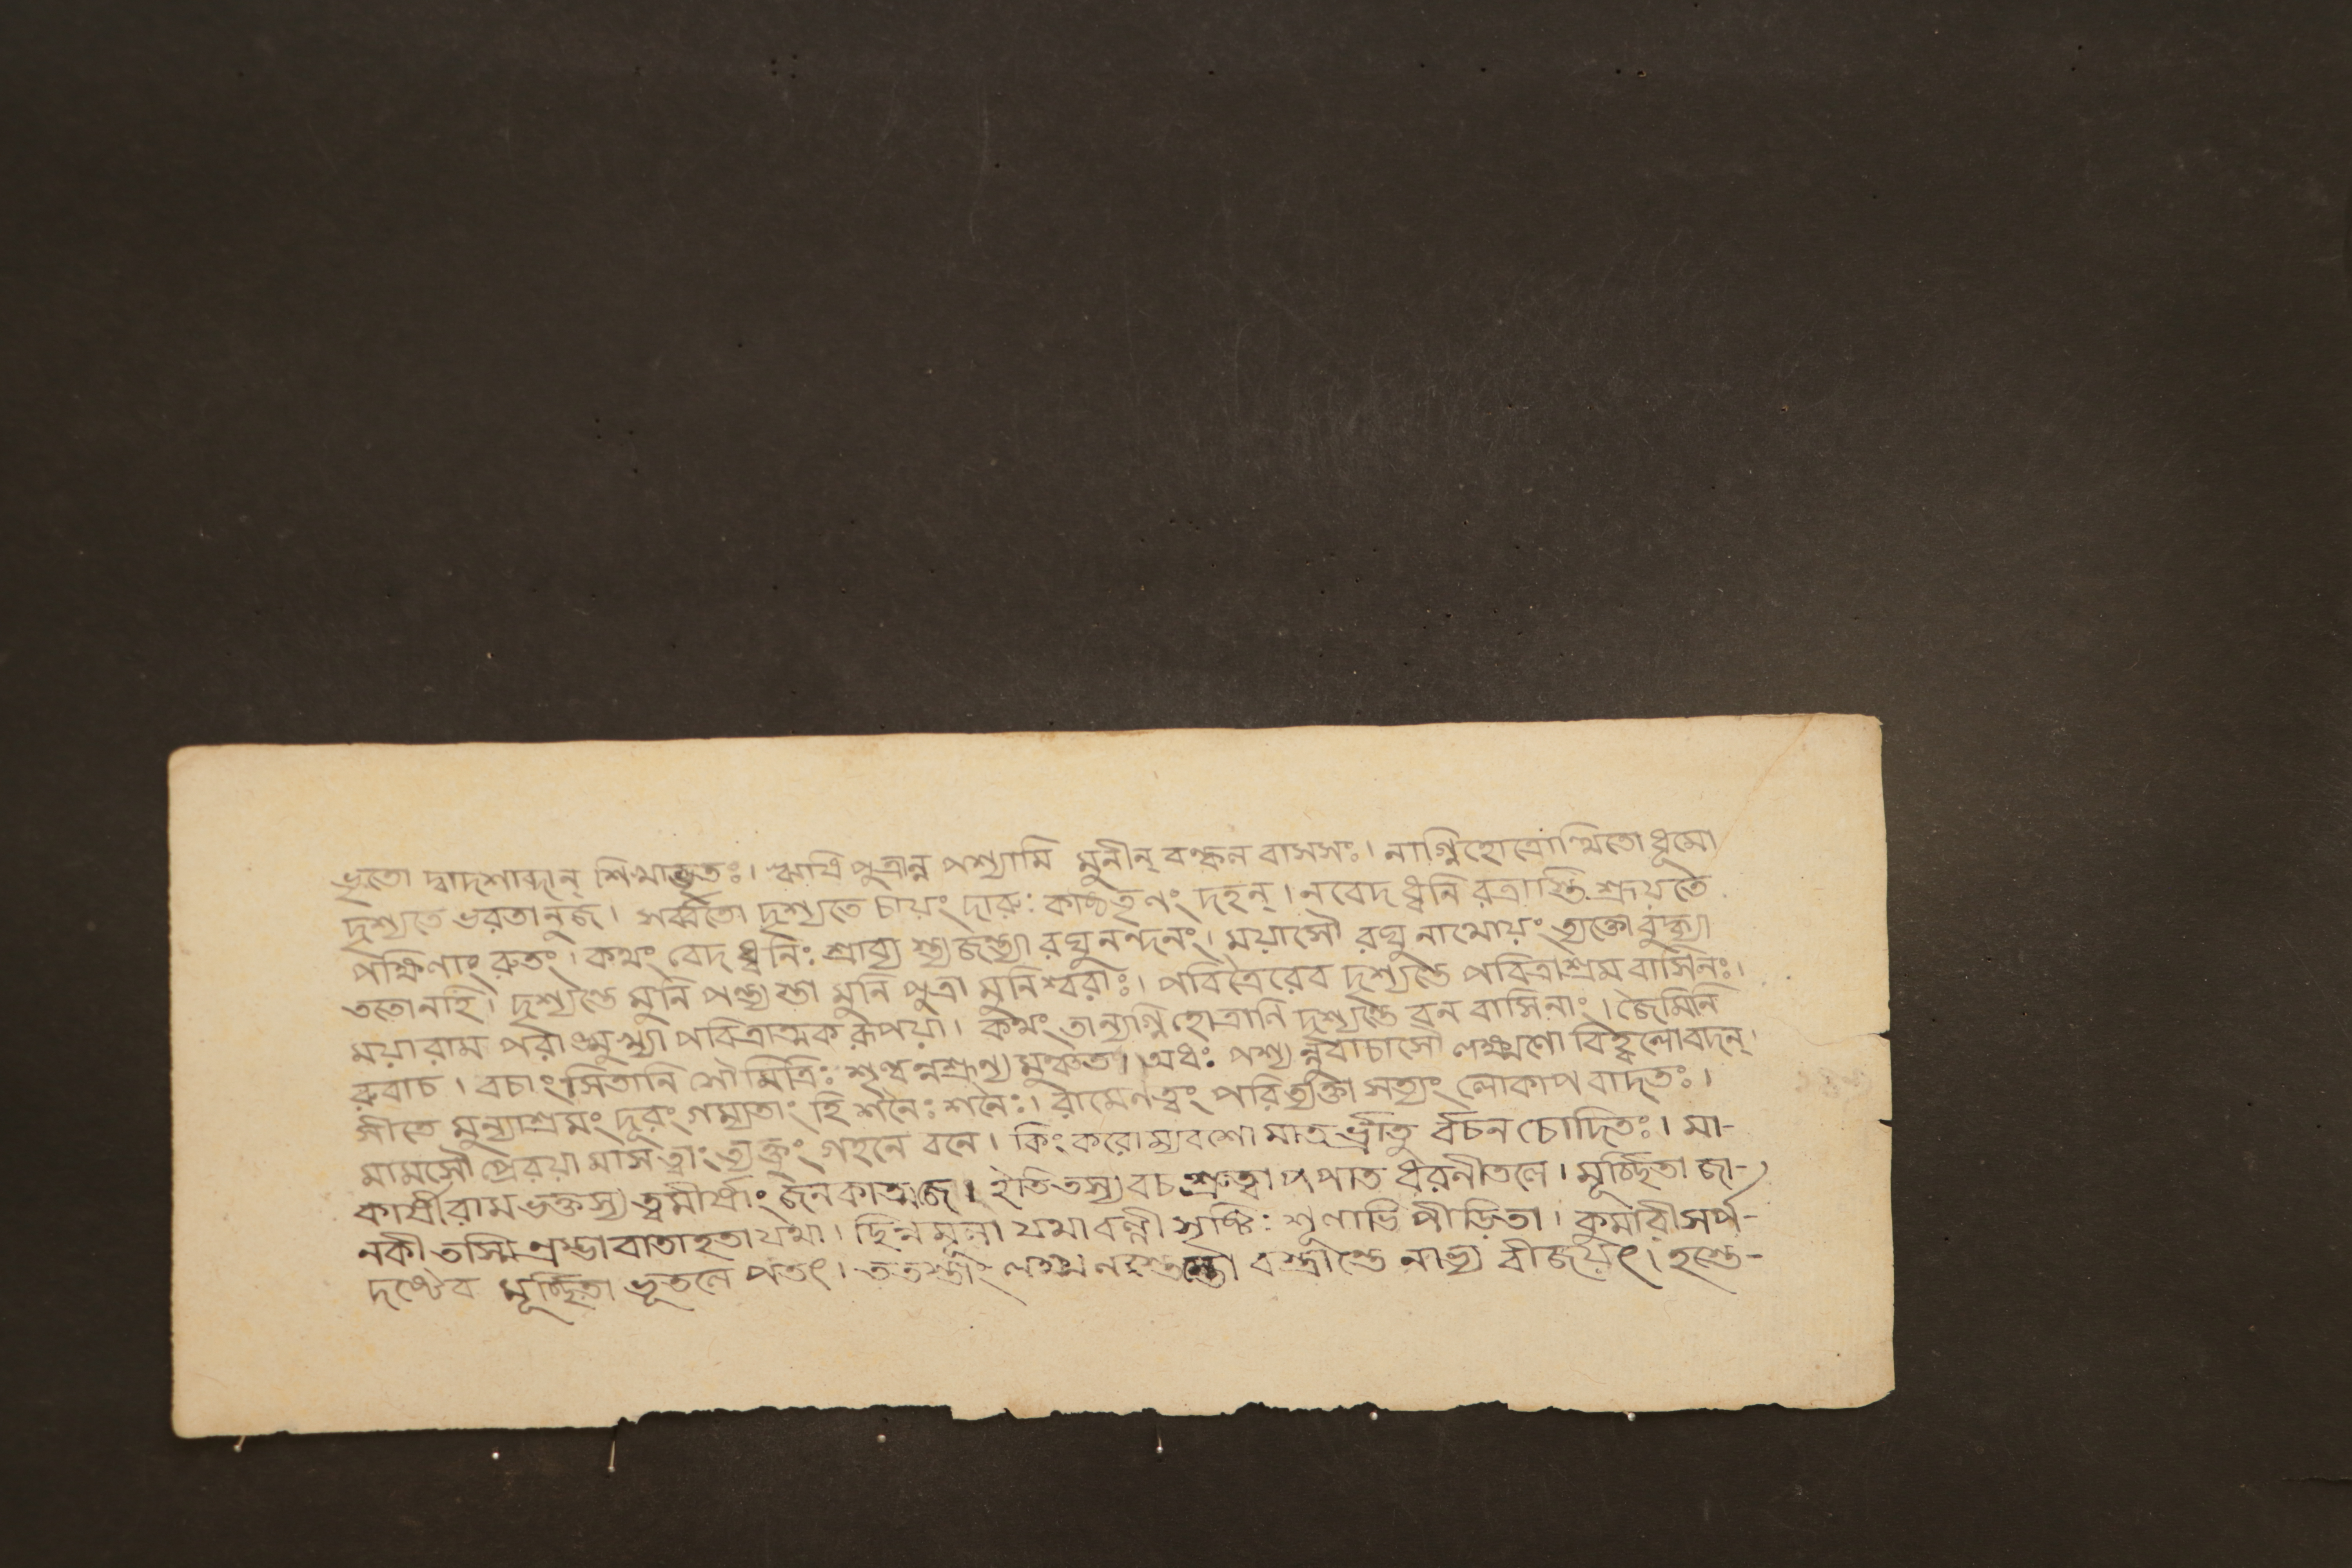 ভৃতো দ্বাদশাব্দান্ শিখাভৃতঃ। ঋষিপুত্রান্ন পশ্যামি মুনীন্ বল্কল বাসসঃ। নাগ্নিহোত্রোত্থিতো ধূমো
দৃশ্যতে ভরতানুজ। সর্ব্বতো দৃশ্যতে চায়ং দারুঃ কাষ্ঠতৃণং দহন্। নবেদ ধ্বনি রত্রাস্তি শ্রূয়তে
পক্ষিণাং রুতং। কথং বেদ ধ্বনিঃ শ্রাব্য রঘুনন্দনং। ময়াসৌ রঘুনাথোয়ং ত্যক্তো
ততোনহি। দৃশ্যন্তে মুনি পত্ন্যস্তা মুনি পুত্রা মুনিশ্বরাঃ। পবিত্রৈরেব দৃশ্যন্তে পবিত্রাশ্রম বাসিনঃ।
ময়ারাম পরাঙ্মুখ্যা পবিত্রাত্মক রূপয়া। কথং তান্যগ্নিহোত্রানি দৃশ্যন্তে বন বাসিনাং। জৈমিনি
রুবাচ। বচাংসিতানি সৌমিত্রিঃ শৃণ্বন্নশ্রূন্য মুঞ্চত। অধঃ পশ্যন্নুবাচাসৌ লক্ষ্মণো বিহ্বলোবদন্।
সীতে মুন্যাশ্রমং দূরং গম্যতাং হি শনৈঃ শনৈঃ। রামেণত্বং পরিত্যক্তা সত্যং লোকাপ বাদতঃ।
মামসৌ প্রেরয়া মাস ত্বাং ত্যক্তুং গহনে বনে। কিং করোম্যবশো মাতর্ভ্রাতু র্বচন চোদিতঃ। মা-
কার্ষীরাম ভক্তস্য ত্বমীর্ষাং জনকাত্মজে। ইতিতস্য বচ শ্রুত্বা পপাত ধরনীতলে। মূর্চ্ছিতা জা-
নকী তস্মি বাতাহতা যথা। ছিন্নমূলা যথাবল্লী পীড়িতা। কুমারী সর্প-
দষ্টেব মূর্চ্ছিতা ভূতলে পতৎ। ততস্তাং বস্ত্রান্তে নাভ্য বীজয়ৎ। হস্তে-